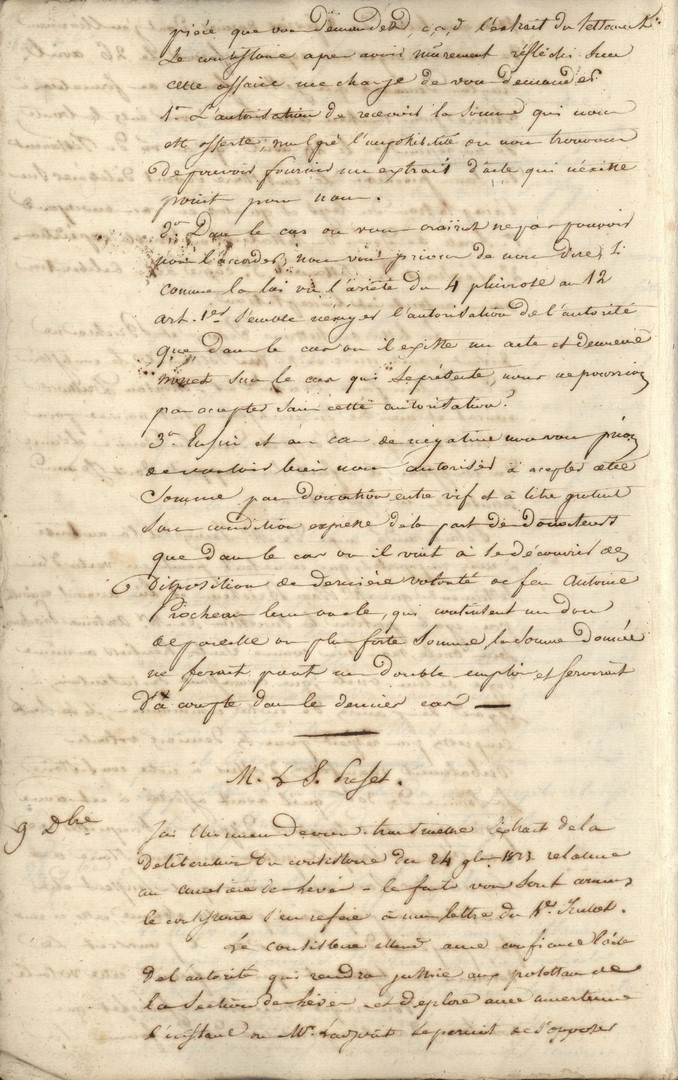 pièce que vous demandez, c,a,d l'extrait du testament.
Le consistoire apres avoir mûrement réflechi sur
cette affaire me charge de vous demander
1º L'autorisation de recevoir la somme qui nous
est offerte, malgré l'impossibilité ou nous trouvons
de pouvoir fournir un extrait d'acte qui n'existe
point pour nous.
2º Dans le cas ou vous croiriez ne pas pouvoir
nous l'accorder, nous vous prions de nous dire, si
comme la loi vu l'arrêté du 4 pluviose an 12
art. 1er semble n'exiger l'autorisation de l'autorité
que dans le cas ou il existe un acte et demeure
muet sur le cas qui se présente, nous ne pourrions
pas accepter sans cette autorisation?
3º Enfin et en cas de négative nous vous prions
de vouloir bien nous autoriser à accepter cette
somme par donation entre vif et à titre gratuit
sans condition expresse de la part des donateurs
que dans le cas ou il vint à se découvrir des
disposition de dernière volonté de feu Antoine
Piocheau leur oncle, qui continssent un don
de pareille ou plus forte somme, la somme donnée
ne ferait point un double emploi et servirait
d'à compte dans le dernier cas
M. le S. Prefet.
9 Dbre
J'ai l'honneur de vous transmettre l'extrait de la
Délibération du consistoire du 24 9bre 1823 relative
au cimetière de - les faits vous sont connus
le consistoire s'en refere à ma lettre du 1er Juillet.
Le consistoire attend avec confiance
de l'autorité qui rendra justice aux protestans de
la section de et déplore avec amertume
l'instant ou Mr. L'adjoint se permit de s'opposer